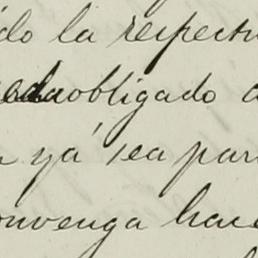 do la respectiv
queda obligado a
n ya sea par
onvenga hace